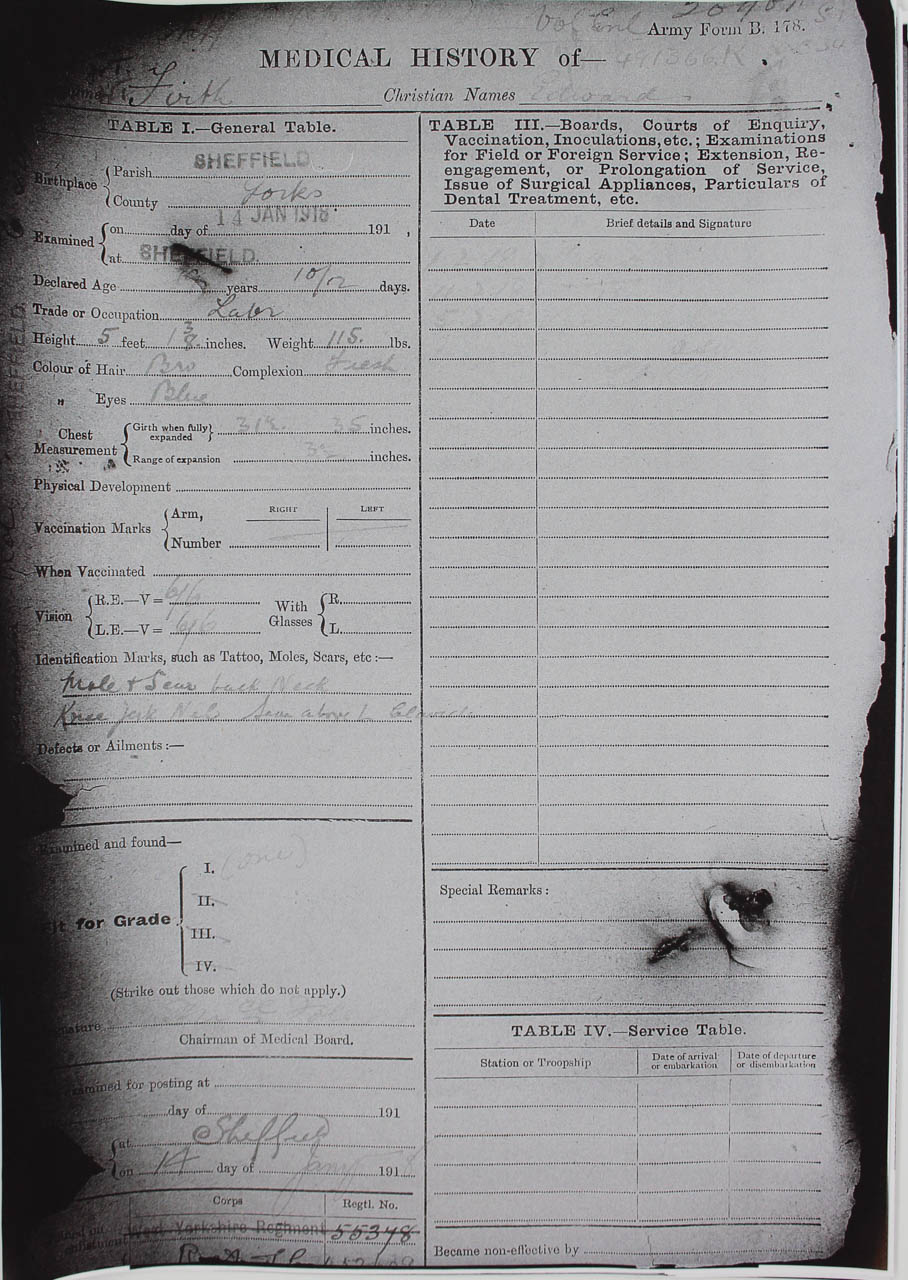 Army Form B. 178.
MEDICAL HISTORY of—
Firth Christian Names Edward
TABLE I.—General Table.
Birthplace { Parish SHEFFIELD
County Yorks
Examined { on 14 JAN 1918 day of 191 ,
at SHEFFIELD.
Declared Age years 10/12 days.
Trade or Occupation Labr
Height 5 feet 1 3/8 inches. Weight 115. lbs.
Colour of Hair Bro Complexion Fresh
" Eyes Blue
Chest Measurement { Girth when fully expanded } 35 inches.
Range of expansion inches.
Physical Development
Vaccination Marks { Arm, RIGHT LEFT
Number
When Vaccinated
Vision { R.E.—V = 6/6 With Glasses { R.
L.E.—V = 6/6 L.
Identification Marks, such as Tattoo, Moles, Scars, etc :—
Mole & Scar back Neck
Knee Jerk Nil Scar above L Clavicle
Defects or Ailments :—
Examined and found—
Fit for Grade { I. (one)
II.
III.
IV.
(Strike out those which do not apply.)
Signature
Chairman of Medical Board.
Examined for posting at
day of 191
at Sheffield
on 14 day of Jany 191
Corps Regtl. No.
West Yorkshire Regiment 55378
TABLE III.—Boards, Courts of Enquiry,
Vaccination, Inoculations, etc.; Examinations
for Field or Foreign Service; Extension, Re-
engagement, or Prolongation of Service,
Issue of Surgical Appliances, Particulars of
Dental Treatment, etc.
Date Brief details and Signature
Special Remarks :
TABLE IV.—Service Table.
Station or Troopship Date of arrival or embarkation Date of departure or disembarkation
Became non-effective by